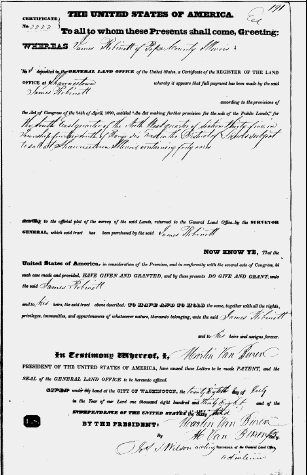 191
THE UNITED STATES OF AMERICA.
CERTIFICATE
No. 2222
To all to whom these Presents shall come, Greeting:
WHEREAS James Robinett of Pope County Illinois
deposited in the GENERAL LAND OFFICE of the United States, a Certificate of the REGISTER OF THE LAND
OFFICE at Shawneetown whereby it appears that full payment has been made by the said
James Robinett
according to the provisions
of the Act of Congress of the 24th of April, 1820, entitled "An Act making further provision for the sale of the Public Lands," for
the South East quarter of the North West quarter of Section thirty four in
Township of Range in the District of Lands subject
to sale at Shawneetown Illinois containing forty acres
according to the official plat of the survey of the said Lands, returned to the General Land Office by the SURVEYOR
GENERAL, which said tract has been purchased by the said James Robinett
NOW KNOW YE, That the
United States of America, in consideration of the Premises, and in conformity with the several acts of Congress, in
such case made and provided, HAVE GIVEN AND GRANTED, and by these presents DO GIVE AND GRANT, unto
the said James Robinett
and to his heirs, the said tract above described: TO HAVE AND TO HOLD the same, together with all the rights,
privileges, immunities, and appurtenances of whatsoever nature, thereunto belonging, unto the said James Robinett
and to his heirs and assigns forever.
In Testimony Whereof, I, Martin Van Buren
PRESIDENT OF THE UNITED STATES OF AMERICA, have caused these Letters to be made PATENT, and the
SEAL of the GENERAL LAND OFFICE to be hereunto affixed.
GIVEN under my hand at the CITY OF WASHINGTON, the twenty eighth day of July
in the Year of our Lord one thousand eight hundred and thirty eight and of the
INDEPENDENCE OF THE UNITED STATES the Sixty third
BY THE PRESIDENT: Martin Van Buren
By M. Van Buren Jr. Sec'y.
Jos. S. Wilson acting Recorder of the General Land Office
ad interim